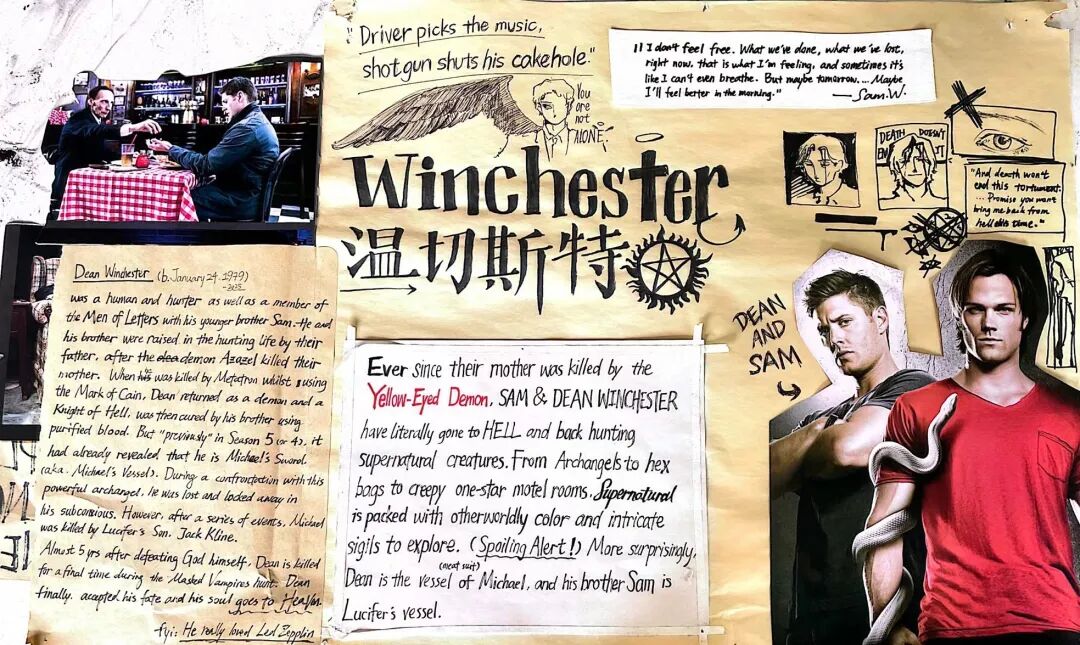 "Driver picks the music,
shotgun shuts his cakehole."
You
are
not
ALONE.
"I don't feel free. What we've done, what we've lost,
right now, that is what I'm feeling, and sometimes it's
like I can't even breathe. But maybe tomorrow.... Maybe
I'll feel better in the morning."
— Sam.W.
Winchester
温切斯特
DEATH DOESN'T
"And death won't
end this torturment.
.... Promise you won't
bring me back from
hell this time."
DEAN
AND
SAM
Dean Winchester (b. January 24. 1979)
was a human and hunter as well as a member of
the Men of Letters with his younger brother Sam. He and
his brother were raised in the hunting life by their
father, after the demon Azazel killed their
mother. When he was killed by Metatron whilst using
the Mark of Cain, Dean returned as a demon and a
Knight of Hell, was then cured by his brother using
purified blood. But "previously" in Season 5 (or 4), it
had already revealed that he is Michael's Sword
(aka. Michael's Vessel). During a confrontation with this
powerful archangel, he was lost and locked away in
his subconsious. However, after a series of events, Michael
was killed by Lucifer's Son, Jack Kline.
Almost 5 yrs after defeating God himself, Dean is killed
for a final time during the Masked Vampires hunt. Dean
finally accepted his fate and his soul goes to Heaven.
fyi: He really loved Led Zepplin
Ever since their mother was killed by the
Yellow-Eyed Demon, SAM & DEAN WINCHESTER
have literally gone to HELL and back hunting
supernatural creatures. From Archangels to hex
bags to creepy one-star motel rooms, Supernatural
is packed with otherworldly color and intricate
sigils to explore. (Spoiling Alert!) More surprisingly,
(meat suit)
Dean is the vessel of Michael, and his brother Sam is
Lucifer's vessel.